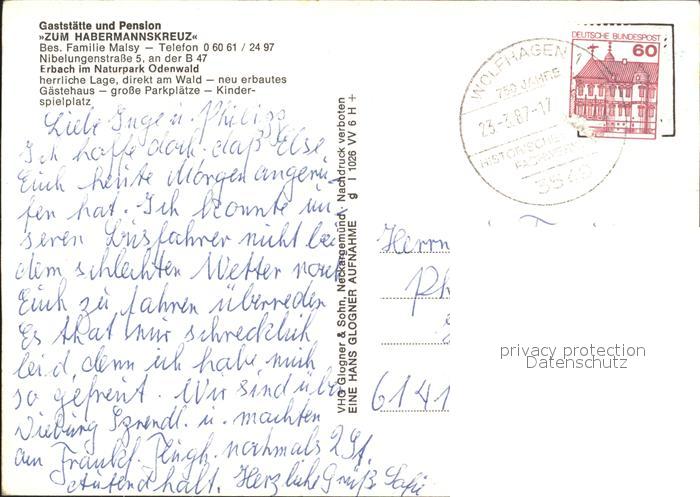 Gaststätte und Pension
»ZUM HABERMANNSKREUZ«
Bes. Familie Malsy — Telefon 0 60 61 / 24 97
Nibelungenstraße 5, an der B 47
Erbach im Naturpark Odenwald
herrliche Lage, direkt am Wald — neu erbautes
Gästehaus — große Parkplätze — Kinder-
spielplatz
Liebe Inge u. Philipp
Ich hoffe doch daß Else
Euch heute Morgen angeru-
fen hat. Ich konnte un-
seren Busfahrer nicht bei
dem schlechten Wetter nach
Euch zu fahren überreden
Es that mir schrecklich
leid, denn ich habe mich
so gefreut. Wir sind über
Dieburg u. machten
am Frankf. Flugh. nochmals 2 St.
Aufenthalt. Herzliche Grüße
VHG Glogner & Sohn, Neckargemünd, Nachdruck verboten
EINE HANS GLOGNER AUFNAHME g | 1026 VV 6 H +
DEUTSCHE BUNDESPOST
60
WOLFHAGEN 1
750 JAHRE
23-7.87-17
HISTORISCHE
3549
Herrn
Ph
6141
privacy protection
Datenschutz